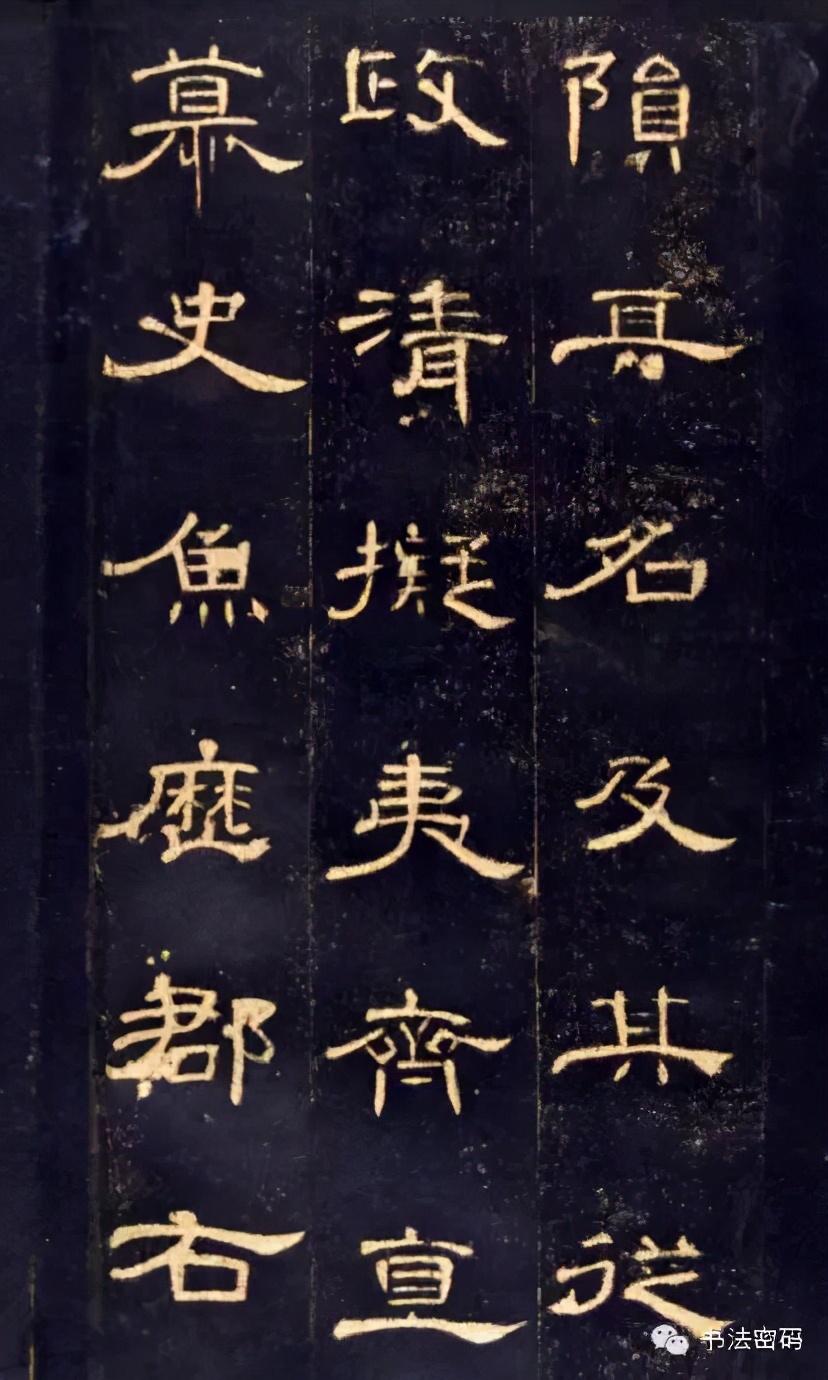 隕其名及其從
政清擬夷齊直
慕史魚歷郡右
书法密码